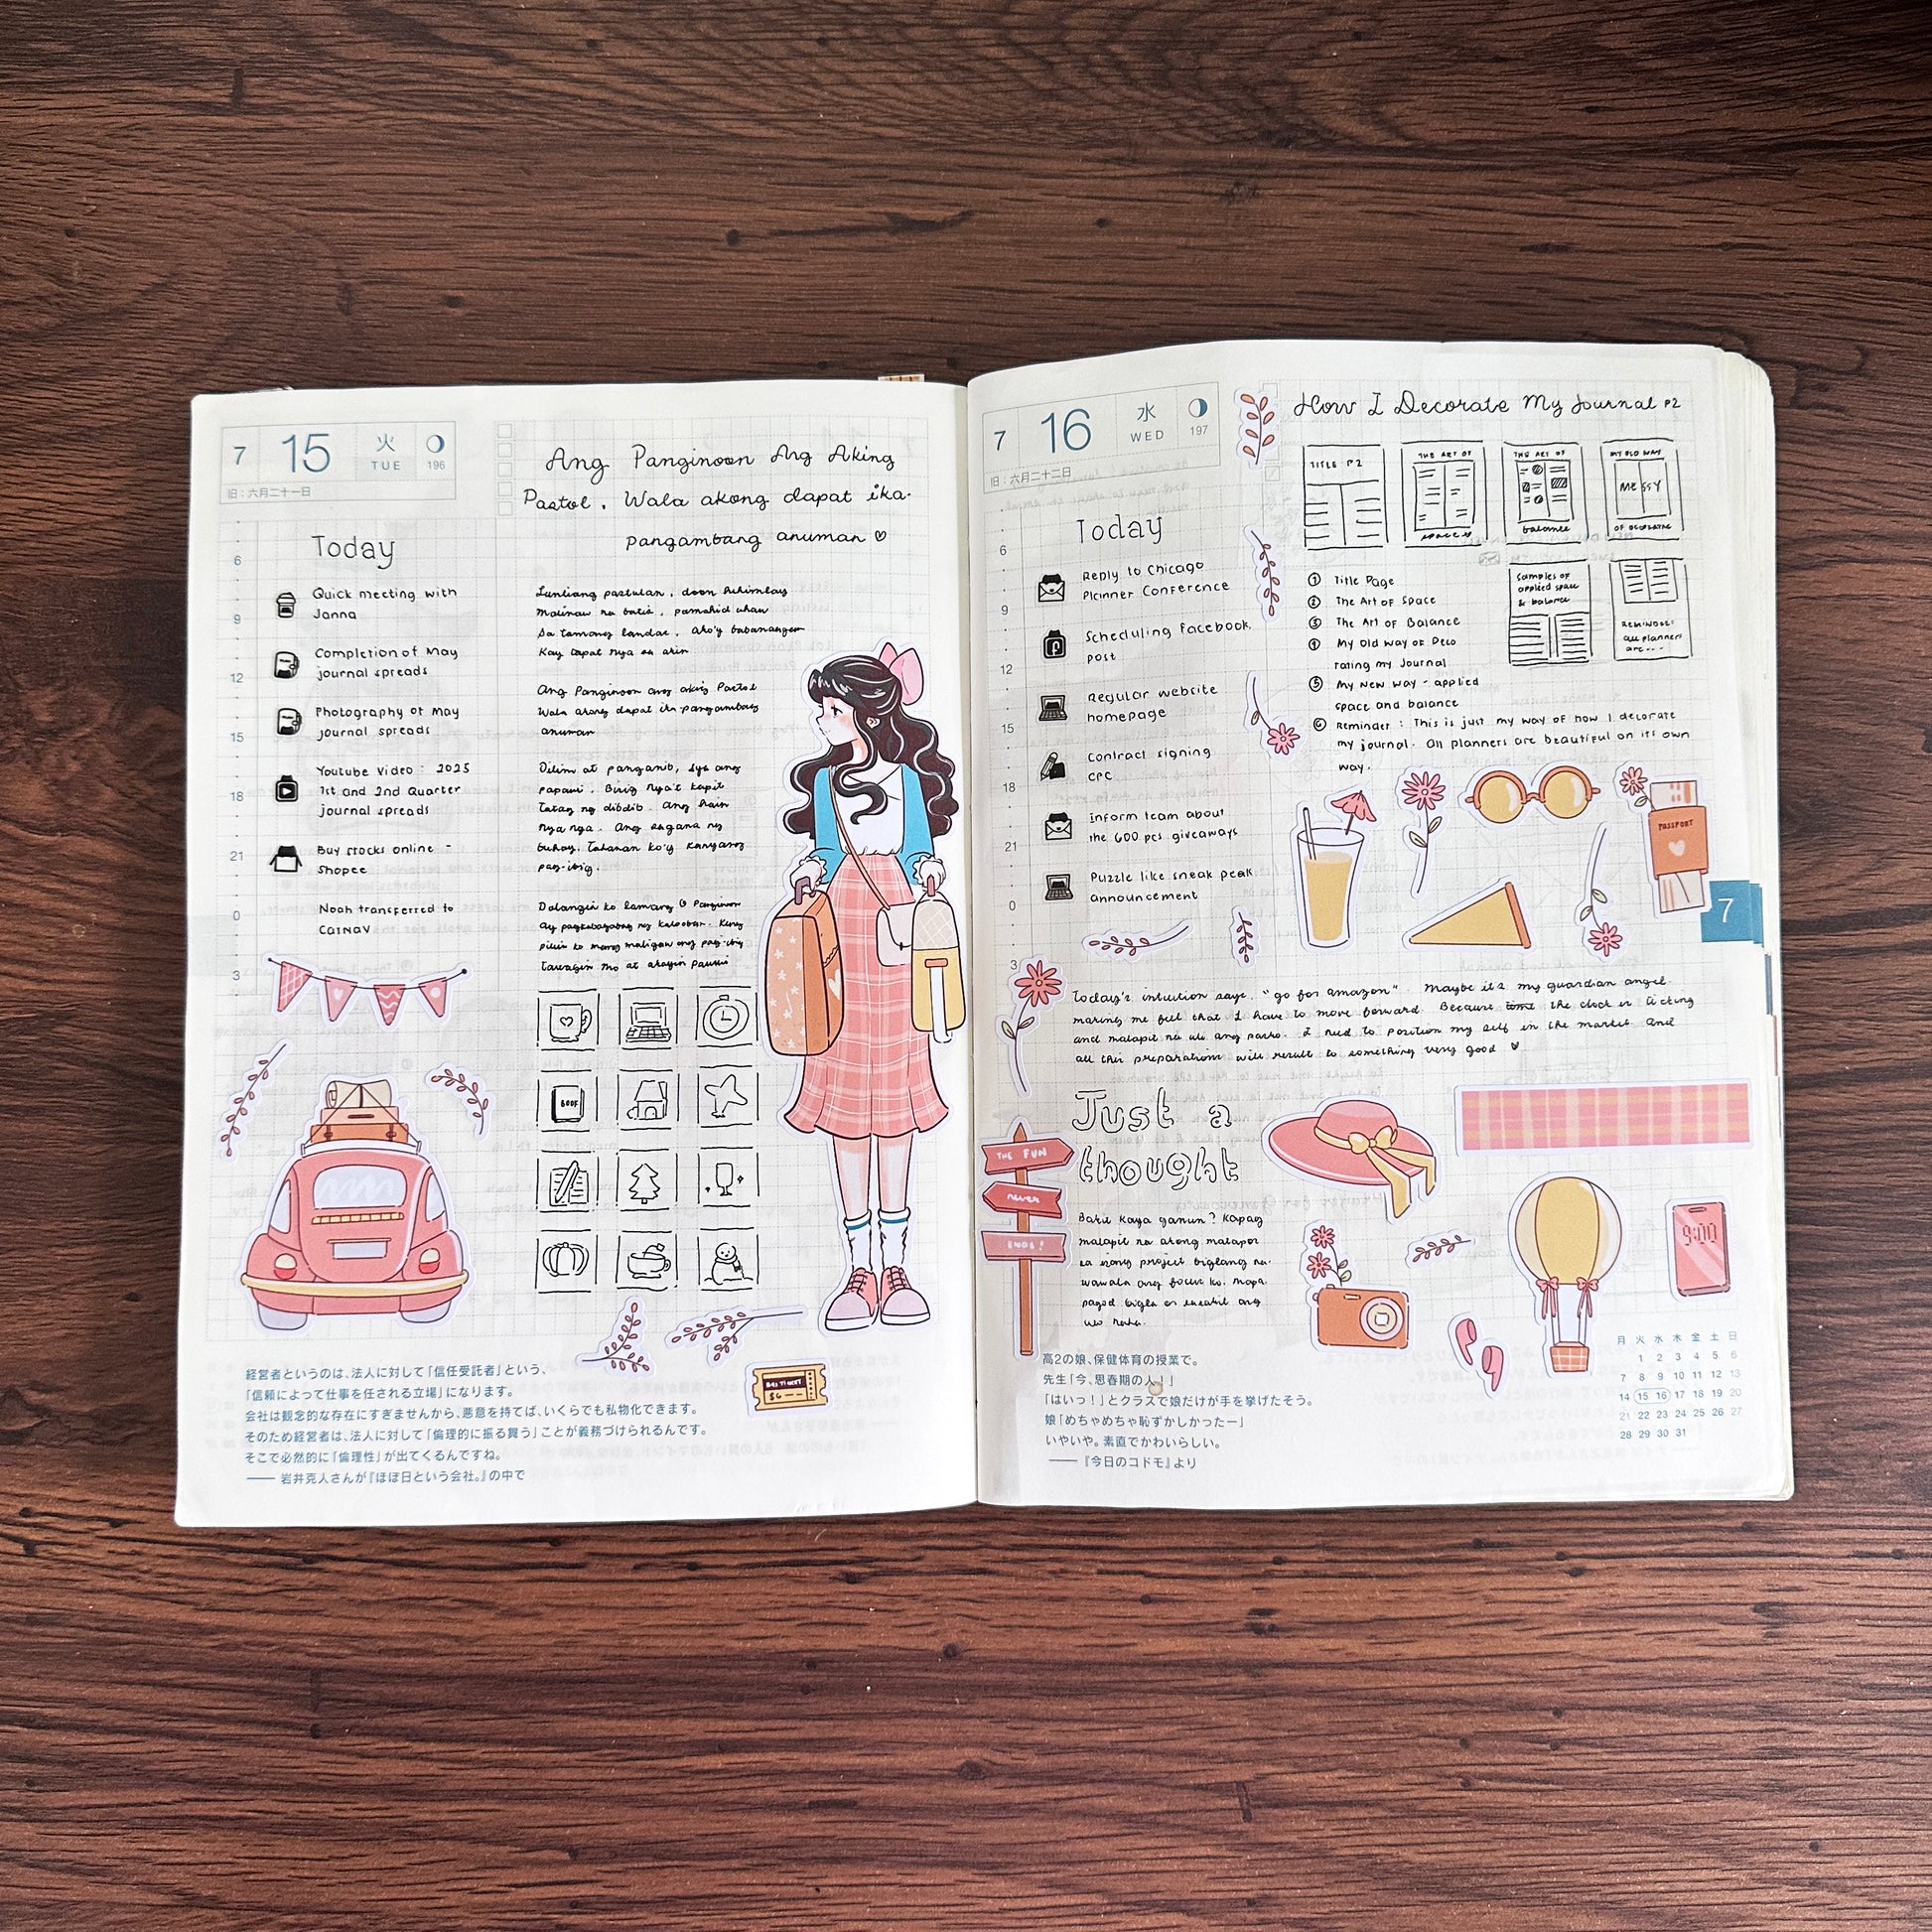 7 15 火 TUE 196
旧:六月二十一日
Ang Panginoon Ang Aking
Pastol. Wala akong dapat ika-
pangambang anuman ♡
Today
Quick meeting with
Janna
Completion of May
journal spreads
Photography of May
journal spreads
Youtube Video : 2025
1st and 2nd Quarter
journal spreads
Buy stocks online -
Shopee
Noah transferred to
6
9
12
15
18
21
0
3
Luntiang pastulan, doon
Malinaw na batis, pamahid uhaw
Sa tamang landas,
Kay tapat Nya sa akin
Ang Panginoon ang aking Pastol
Wala akong dapat ika pangambang
anuman
Dilim at panganib, Sya ang
papawi. Bisig Nya't kapit
tatag ng dibdib. Ang hain
Nya nga. Ang sagana ng
buhay. Tahanan ko'y Kanyang
pag-ibig.
Dalangin ko lamang O Panginoon
ang pag-ibig
Tawagin Mo at akayin pauwi
BOOK
BUS TICKET
経営者というのは、法人に対して「信任受託者」という、
「信頼によって仕事を任される立場」になります。
会社は観念的な存在にすぎませんから、悪意を持てば、いくらでも私物化できます。
そのため経営者は、法人に対して「倫理的に振る舞う」ことが義務づけられるんです。
そこで必然的に「倫理性」が出てくるんですね。
── 岩井克人さんが『ほぼ日という会社。』の中で
7 16 水 WED 197
旧:六月二十二日
How I Decorate My Journal P2
TITLE P2
THE ART OF
SPACE
THE ART OF
balance
MY OLD WAY
MESSY
Samples of
applied space
& balance
REMINDER:
all planners
are ---
① Title Page
② The Art of Space
③ The Art of Balance
④ My Old way of Deco
rating my Journal
⑤ My New way - applied
space and balance
⑥ Reminder : This is just my way of how I decorate
my journal. All planners are beautiful on its own
way.
Today
Reply to Chicago
Planner Conference
Scheduling Facebook
post
Regular website
homepage
Contract signing
CPC
Inform team about
the 600 pcs giveaways
Puzzle like sneak peak
announcement
6
9
12
15
18
21
0
3
PASSPORT
7
Today's intuition says, "go for amazon". Maybe its my guardian angel
making me feel that I have to move forward. Because the clock is ticking
and malapit na uli ang pasko. I need to position my self in the market. And
all this preparations will result to something very good ♥
Just a
thought
THE FUN
never
ENDS!
Bakit kaya ganun? Kapag
malapit na akong matapos
sa isang project biglang na-
wawala ang focus ko.
9:00
高2の娘、保健体育の授業で。
先生「今、思春期の人!」
「はいっ!」とクラスで娘だけが手を挙げたそう。
娘「めちゃめちゃ恥ずかしかったー」
いやいや。素直でかわいらしい。
──『今日のコドモ』より
月 火 水 木 金 土 日
1 2 3 4 5 6
7 8 9 10 11 12 13
14 15 16 17 18 19 20
21 22 23 24 25 26 27
28 29 30 31